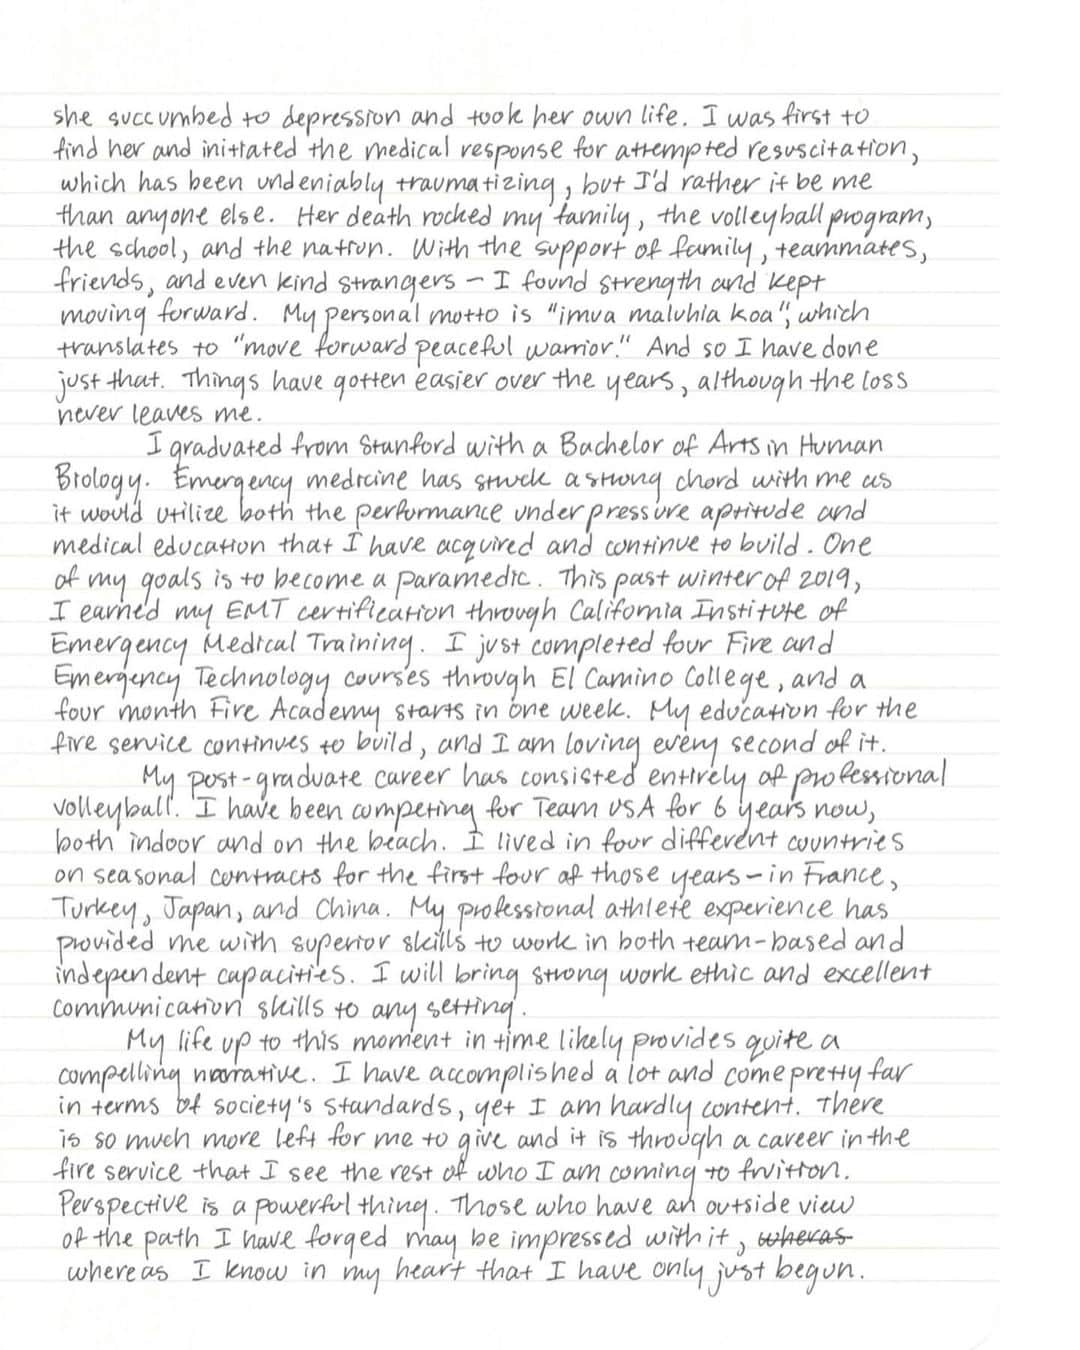 she succumbed to depression and took her own life. I was first to
find her and initiated the medical response for attempted resuscitation,
which has been undeniably traumatizing, but I'd rather it be me
than anyone else. Her death rocked my family, the volleyball program,
the school, and the nation. With the support of family, teammates,
friends, and even kind strangers – I found strength and kept
moving forward. My personal motto is "imua maluhia koa", which
translates to "move forward peaceful warrior." And so I have done
just that. Things have gotten easier over the years, although the loss
never leaves me.
I graduated from Stanford with a Bachelor of Arts in Human
Biology. Emergency medicine has struck a strong chord with me as
it would utilize both the performance under pressure aptitude and
medical education that I have acquired and continue to build. One
of my goals is to become a paramedic. This past winter of 2019,
I earned my EMT certification through California Institute of
Emergency Medical Training. I just completed four Fire and
Emergency Technology courses through El Camino College, and a
four month Fire Academy starts in one week. My education for the
fire service continues to build, and I am loving every second of it.
My post-graduate career has consisted entirely of professional
volleyball. I have been competing for Team USA for 6 years now,
both indoor and on the beach. I lived in four different countries
on seasonal contracts for the first four of those years – in France,
Turkey, Japan, and China. My professional athlete experience has
provided me with superior skills to work in both team-based and
independent capacities. I will bring strong work ethic and excellent
communication skills to any setting.
My life up to this moment in time likely provides quite a
compelling narrative. I have accomplished a lot and come pretty far
in terms of society's standards, yet I am hardly content. There
is so much more left for me to give and it is through a career in the
fire service that I see the rest of who I am coming to fruition.
Perspective is a powerful thing. Those who have an outside view
of the path I have forged may be impressed with it, wheras
whereas I know in my heart that I have only just begun.